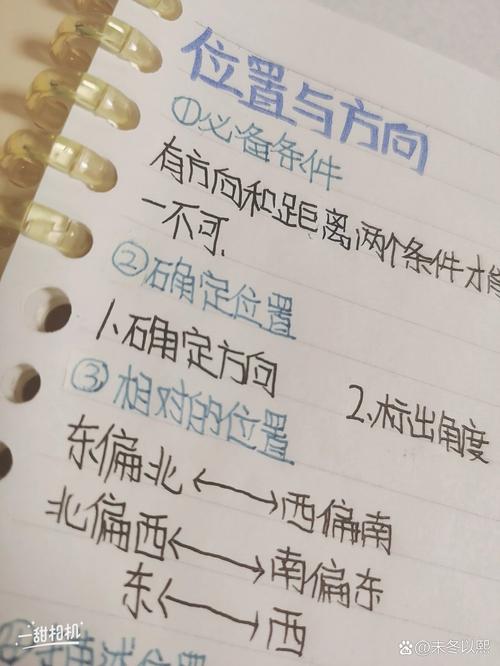 位置与方向
①必备条件
有方向和距离,两个条件才能
一不可.
②确定位置
1.确定方向 2.标出角度
③相对的位置
东偏北←→西偏南
北偏西←→南偏东
东←→西
描述位置
一甜相机
百度@未冬以熙